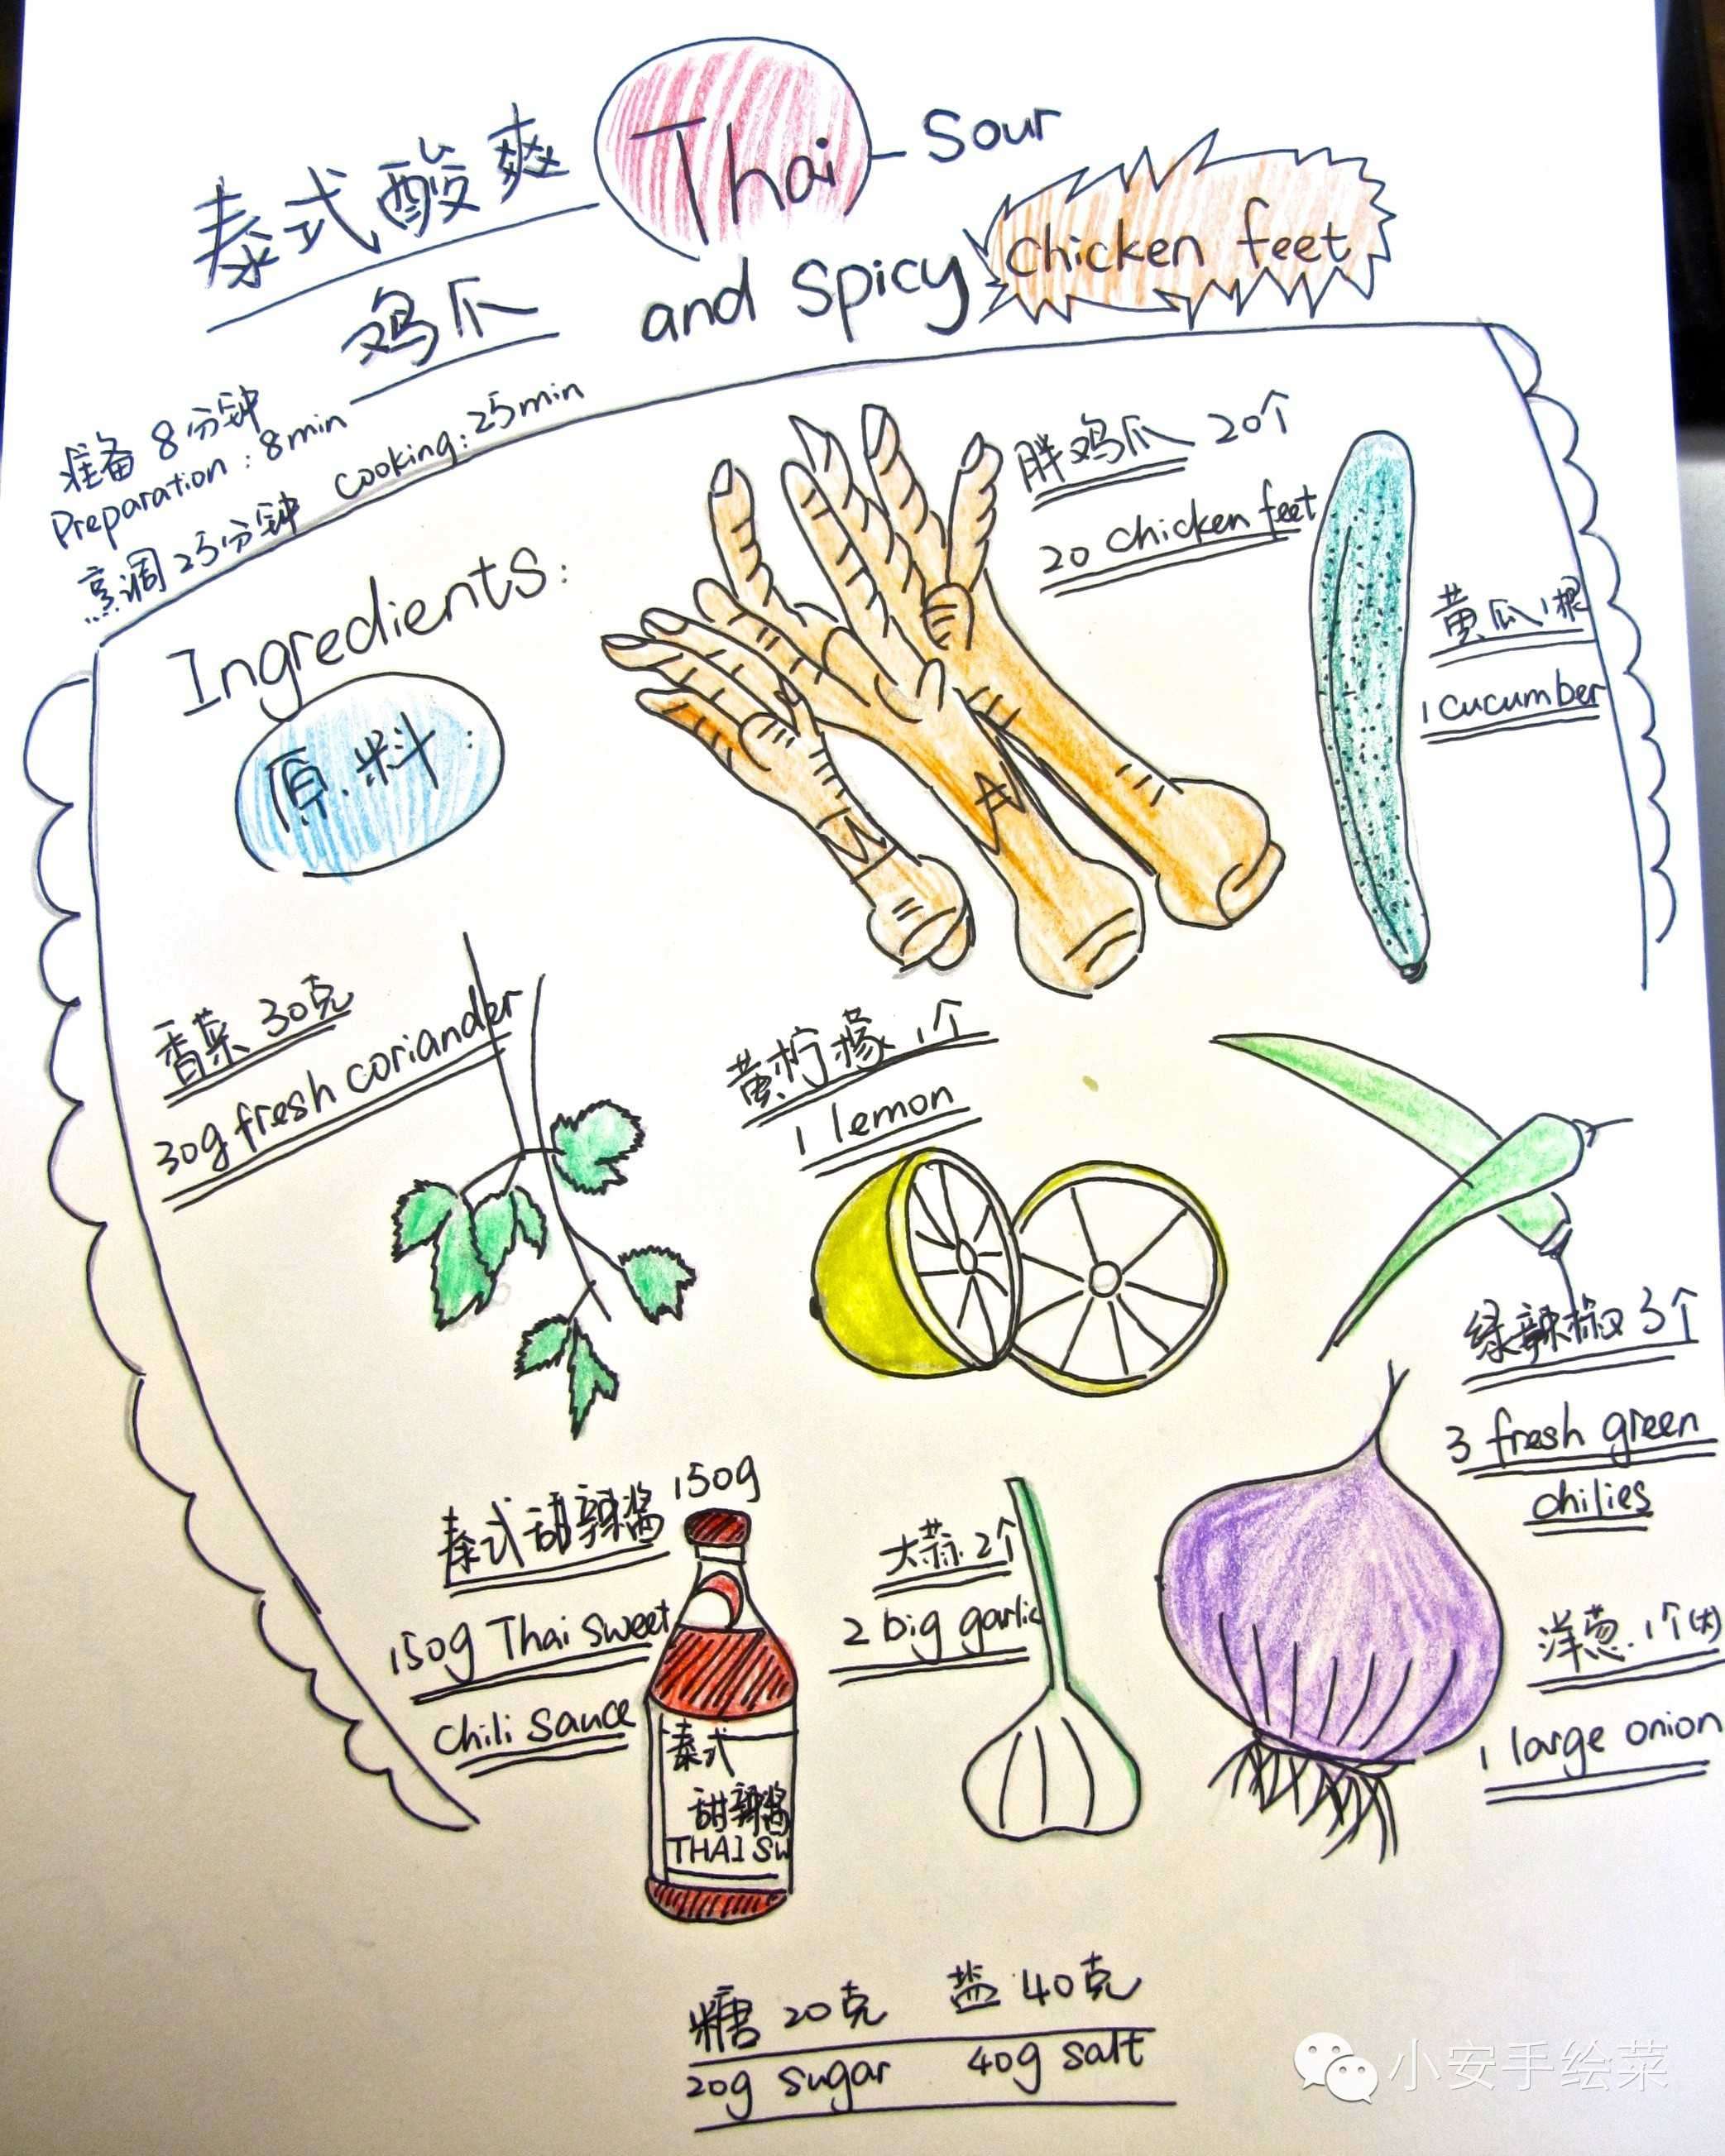 泰式酸爽
鸡爪
Thai-Sour
and Spicy Chicken feet
准备 8分钟
Preparation: 8min
烹调 25分钟 Cooking: 25min
Ingredients:
原料:
胖鸡爪 20个
20 chicken feet
黄瓜1根
1 cucumber
香菜 30克
30g fresh coriander
黄柠檬 1个
1 lemon
绿辣椒 3个
3 fresh green
chilies
泰式甜辣酱 150g
150g Thai sweet
chili sauce
泰式
甜辣酱
THAI SW
大蒜 2个
2 big garlic
洋葱.1个(大)
1 large onion
糖 20克 盐 40克
20g sugar 40g salt
小安手绘菜